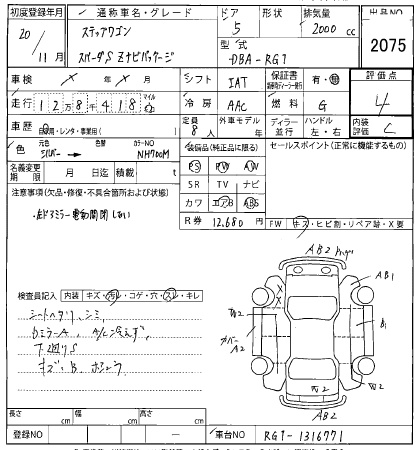 初度登録年月 通称車名・グレード ドア 形状 排気量 出品NO
20/11月 ステップワゴン 5 2000 cc 2075
スパーダS Zナビパッケージ 型式 DBA-RG1
車検 X 年 X 月 シフト IAT 保証書 有・無 評価点
走行 12万8千418 マイル km 冷房 AAC 燃料 G 4
車歴 自家用・レンタ・事業用( ) 定員 8人 外車モデル 年 ディーラー 並行 ハンドル 左・右 内装評価 C
色 元色 シルバー 色替 カラーNO NH700M 装備品(純正品に限る) セールスポイント(正常に機能するもの)
名義変更期限 月 日迄 積載 t PS PW AW
SR TV ナビ
注意事項(欠品・修復・不具合箇所および状態) カワ エアB ABS
R券 12,680 円 FW キズ・ヒビ割・リペア跡・X要
検査員記入 内装 キズ・汚レ・コゲ・穴・スレ・キレ
シートヘタリ、シミ
A/C冷えず
下廻りS
キズ、B
AB2
AB1
B1
A2
AB2
長さ cm 幅 cm 高さ cm
登録NO 車台NO RG1-1316771